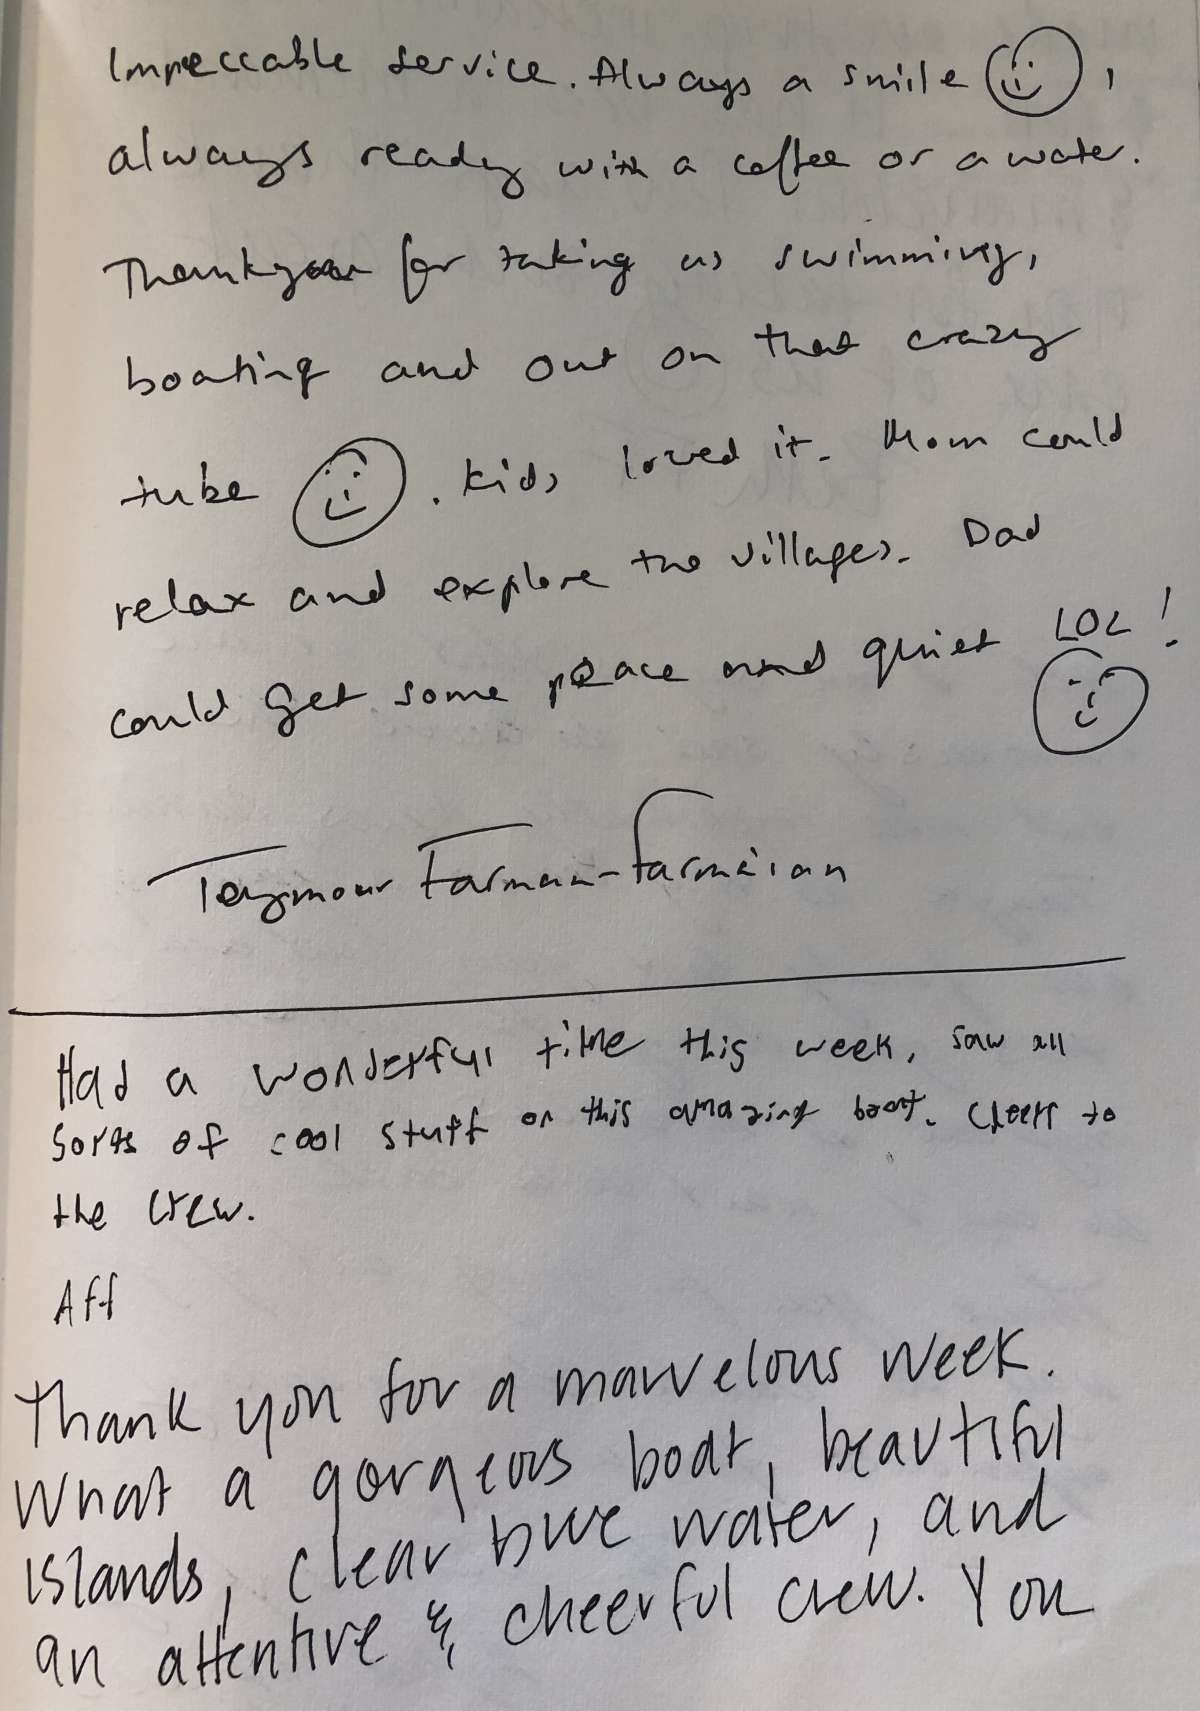 Impeccable service. Always a smile ,
always ready with a coffee or a water.
Thankyou for taking us swimming,
boating and out on that crazy
tube . Kids loved it. Mom could
relax and explore the villages. Dad
could get some peace and quiet LOL!
Teymour Farman-Farmaian
Had a wonderful time this week, saw all
sorts of cool stuff on this amazing boat. Cheers to
the crew.
Aff
Thank you for a marvelous week.
What a gorgeous boat, beautiful
islands, clear blue water, and
an attentive & cheerful crew. You